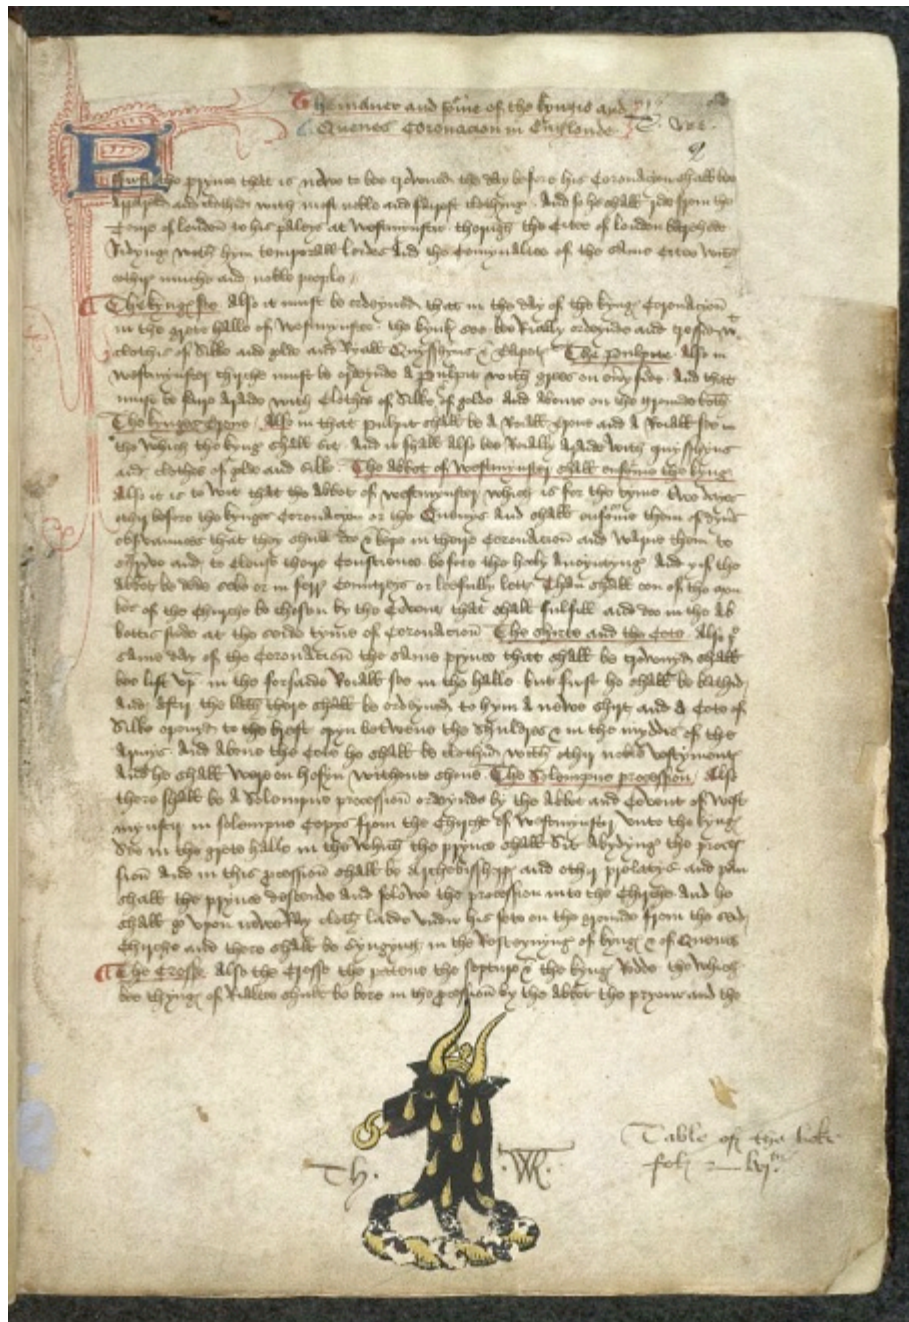 The maner and forme of the kyngis and
Quenes Coronacion in Englonde
First the prynce that is newe to bee crowned the day before his Coronacion shall bee
apparaled and clothed with most noble and fairest clothyng. And so he shall ride from the
Toure of london to his paleys at Westmynster thorugh the Citee of london
Ridyng with hym temporall lordes and the Comynaltee of the same Citee with
othir muche and noble people
The kynges see. Also it must be ordeyned that in the day of the kyng Coronacion
in the grete halle of Westmynster the kyngis see bee Rially ordeyned and
clothis of Silke and golde and Ryall Quysshyns & Tapet. The pulpite. Also in
Westmynster chirche must be ordeyned a pulpit with grees on every side. And that
must be faire araied with Clothes of Silke & of golde and above on the grounde both
The kynges Trone. Also in that pulpit shall be a Riall Trone and a Riall see in
the which the kyng shall sit. And it shall also bee Rially araied with quysshyns
and clothes of golde and Silke. The abbot of Westmynster shall enforme the kyng
Also it is to wit that the abbot of Westmynster which is for the tyme two daies
before the kynges Coronacion or the Quenys And shall enforme them of
observaunces that they shuld doo & kepe in theire Coronacion and warne them to
shryve and to clense theire Conscience before the holy Anoyntyng. And yif the
abbot be dede seke or in ferr Countreys or leefully lette Than shall oon of the mon
kes of the Chirche be chosen by the Covent that shall fulfill and doo in the ab
bottis stede at the seide tyme of Coronacion. The shirte and the Cote. Also the
same day of the Coronacion the same prynce that shall be crowned shall
bee lift up in the forsaide Riall see in the halle. but first he shall be bathid
And aftir the bath there shall be ordeyned to hym a newe shirt and a Cote of
Silke opened to the brest opyn betwene the shuldres & in the myddis of the
Armys. And above the Cote he shall be clothid with othir noble vestyment
And he shall were on hosyn withoute shone. The Solempne procession. Also
there shall be a Solempne procession ordeyned by the Abbot and Covent of West
mynster in solempne Copys from the Chirche of Westmynster unto the kyng
See in the grete halle in the which the prynce shall Sit abydyng the proces
sion and in this procession shall be Archebisshops and othir prelatys and than
shall the prynce descende and folowe the procession into the Chirche and he
shall go upon newe Ray cloth ladde undir his fete on the grounde from the
Chirche and there shall be Syngyng in the Resceyvyng of kyng & of Quenes
The Crosse. Also the Crosse the patene the Septure & the kyng Rodde the which
bee thyngs of Rialtee shall be bore in the procession by the abbot the priour and the
Th. WR.
Table of the boke
foli